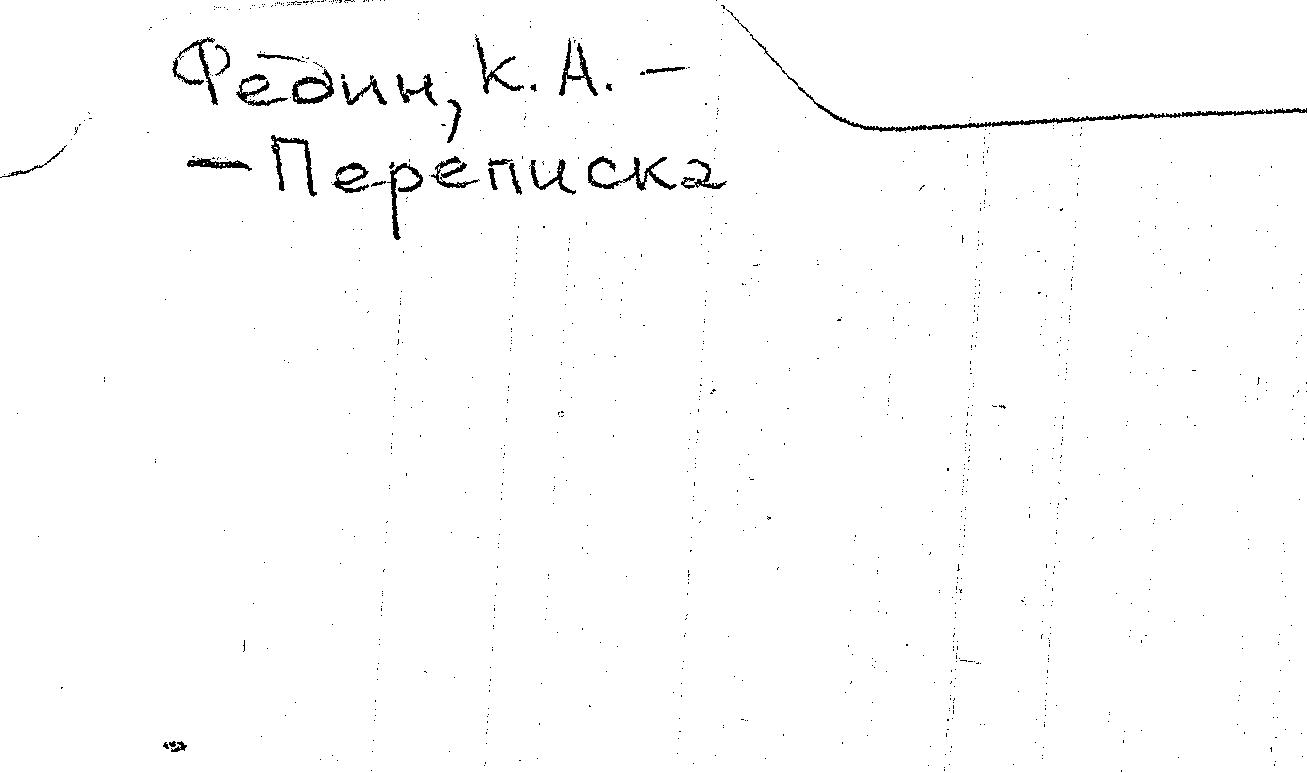 Федин, К. А. –
– Переписка